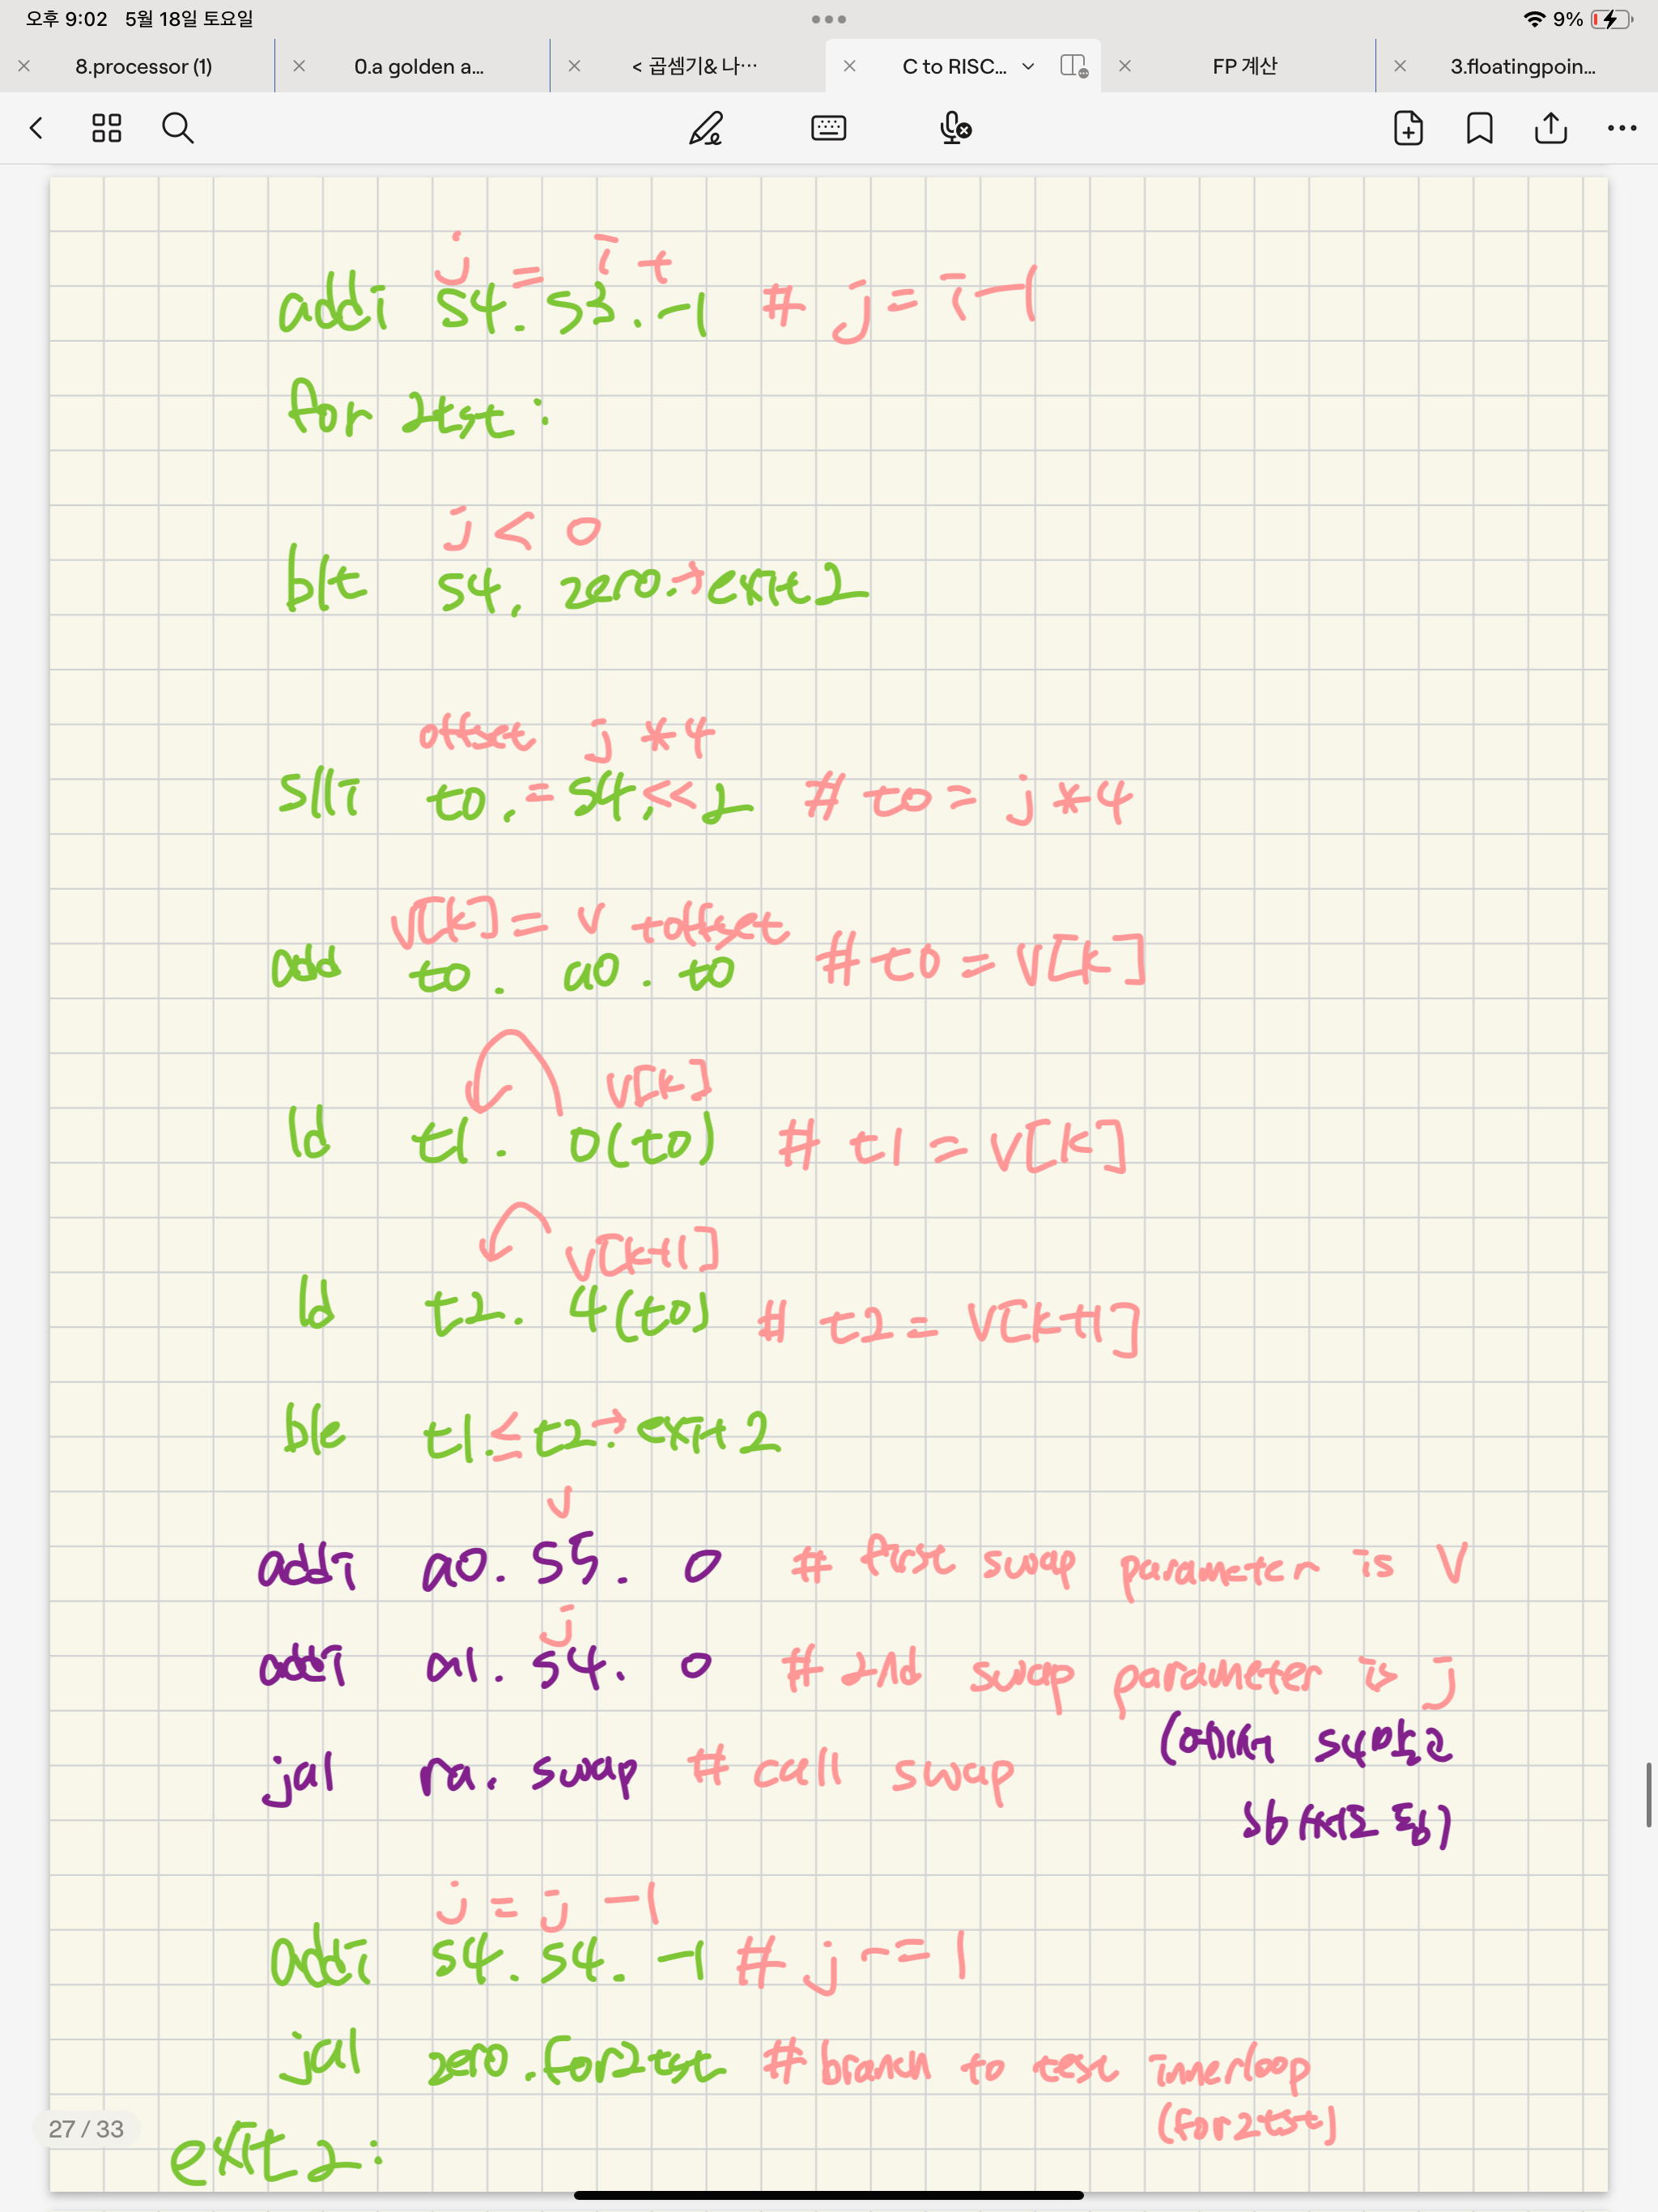 오후 9:02 5월 18일 토요일
9%
8.processor (1)
0.a golden a...
< 곱셈기& 나…
C to RISC...
FP 계산
3.floatingpoin...
j = i +
addi s4. s3. -1 # j = i-1
for 2tst :
j < 0
blt s4. zero. → exit 2
offset j * 4
slli t0. = s4, << 2 # t0 = j * 4
v[k] = v + offset
add t0. a0. t0 # t0 = v[k]
v[k]
ld t1. 0(t0) # t1 = v[k]
v[k+1]
ld t2. 4(t0) # t2 = v[k+1]
ble t1. ≤ t2. → exit 2
v
addi a0. s5. 0 # first swap parameter is v
j
addi a1. s4. 0 # 2nd swap parameter is j
jal ra. swap # call swap
j = j -1
addi s4. s4. -1 # j -= 1
jal zero. for2tst # branch to test innerloop
(for2tst)
27 / 33
exit 2 :